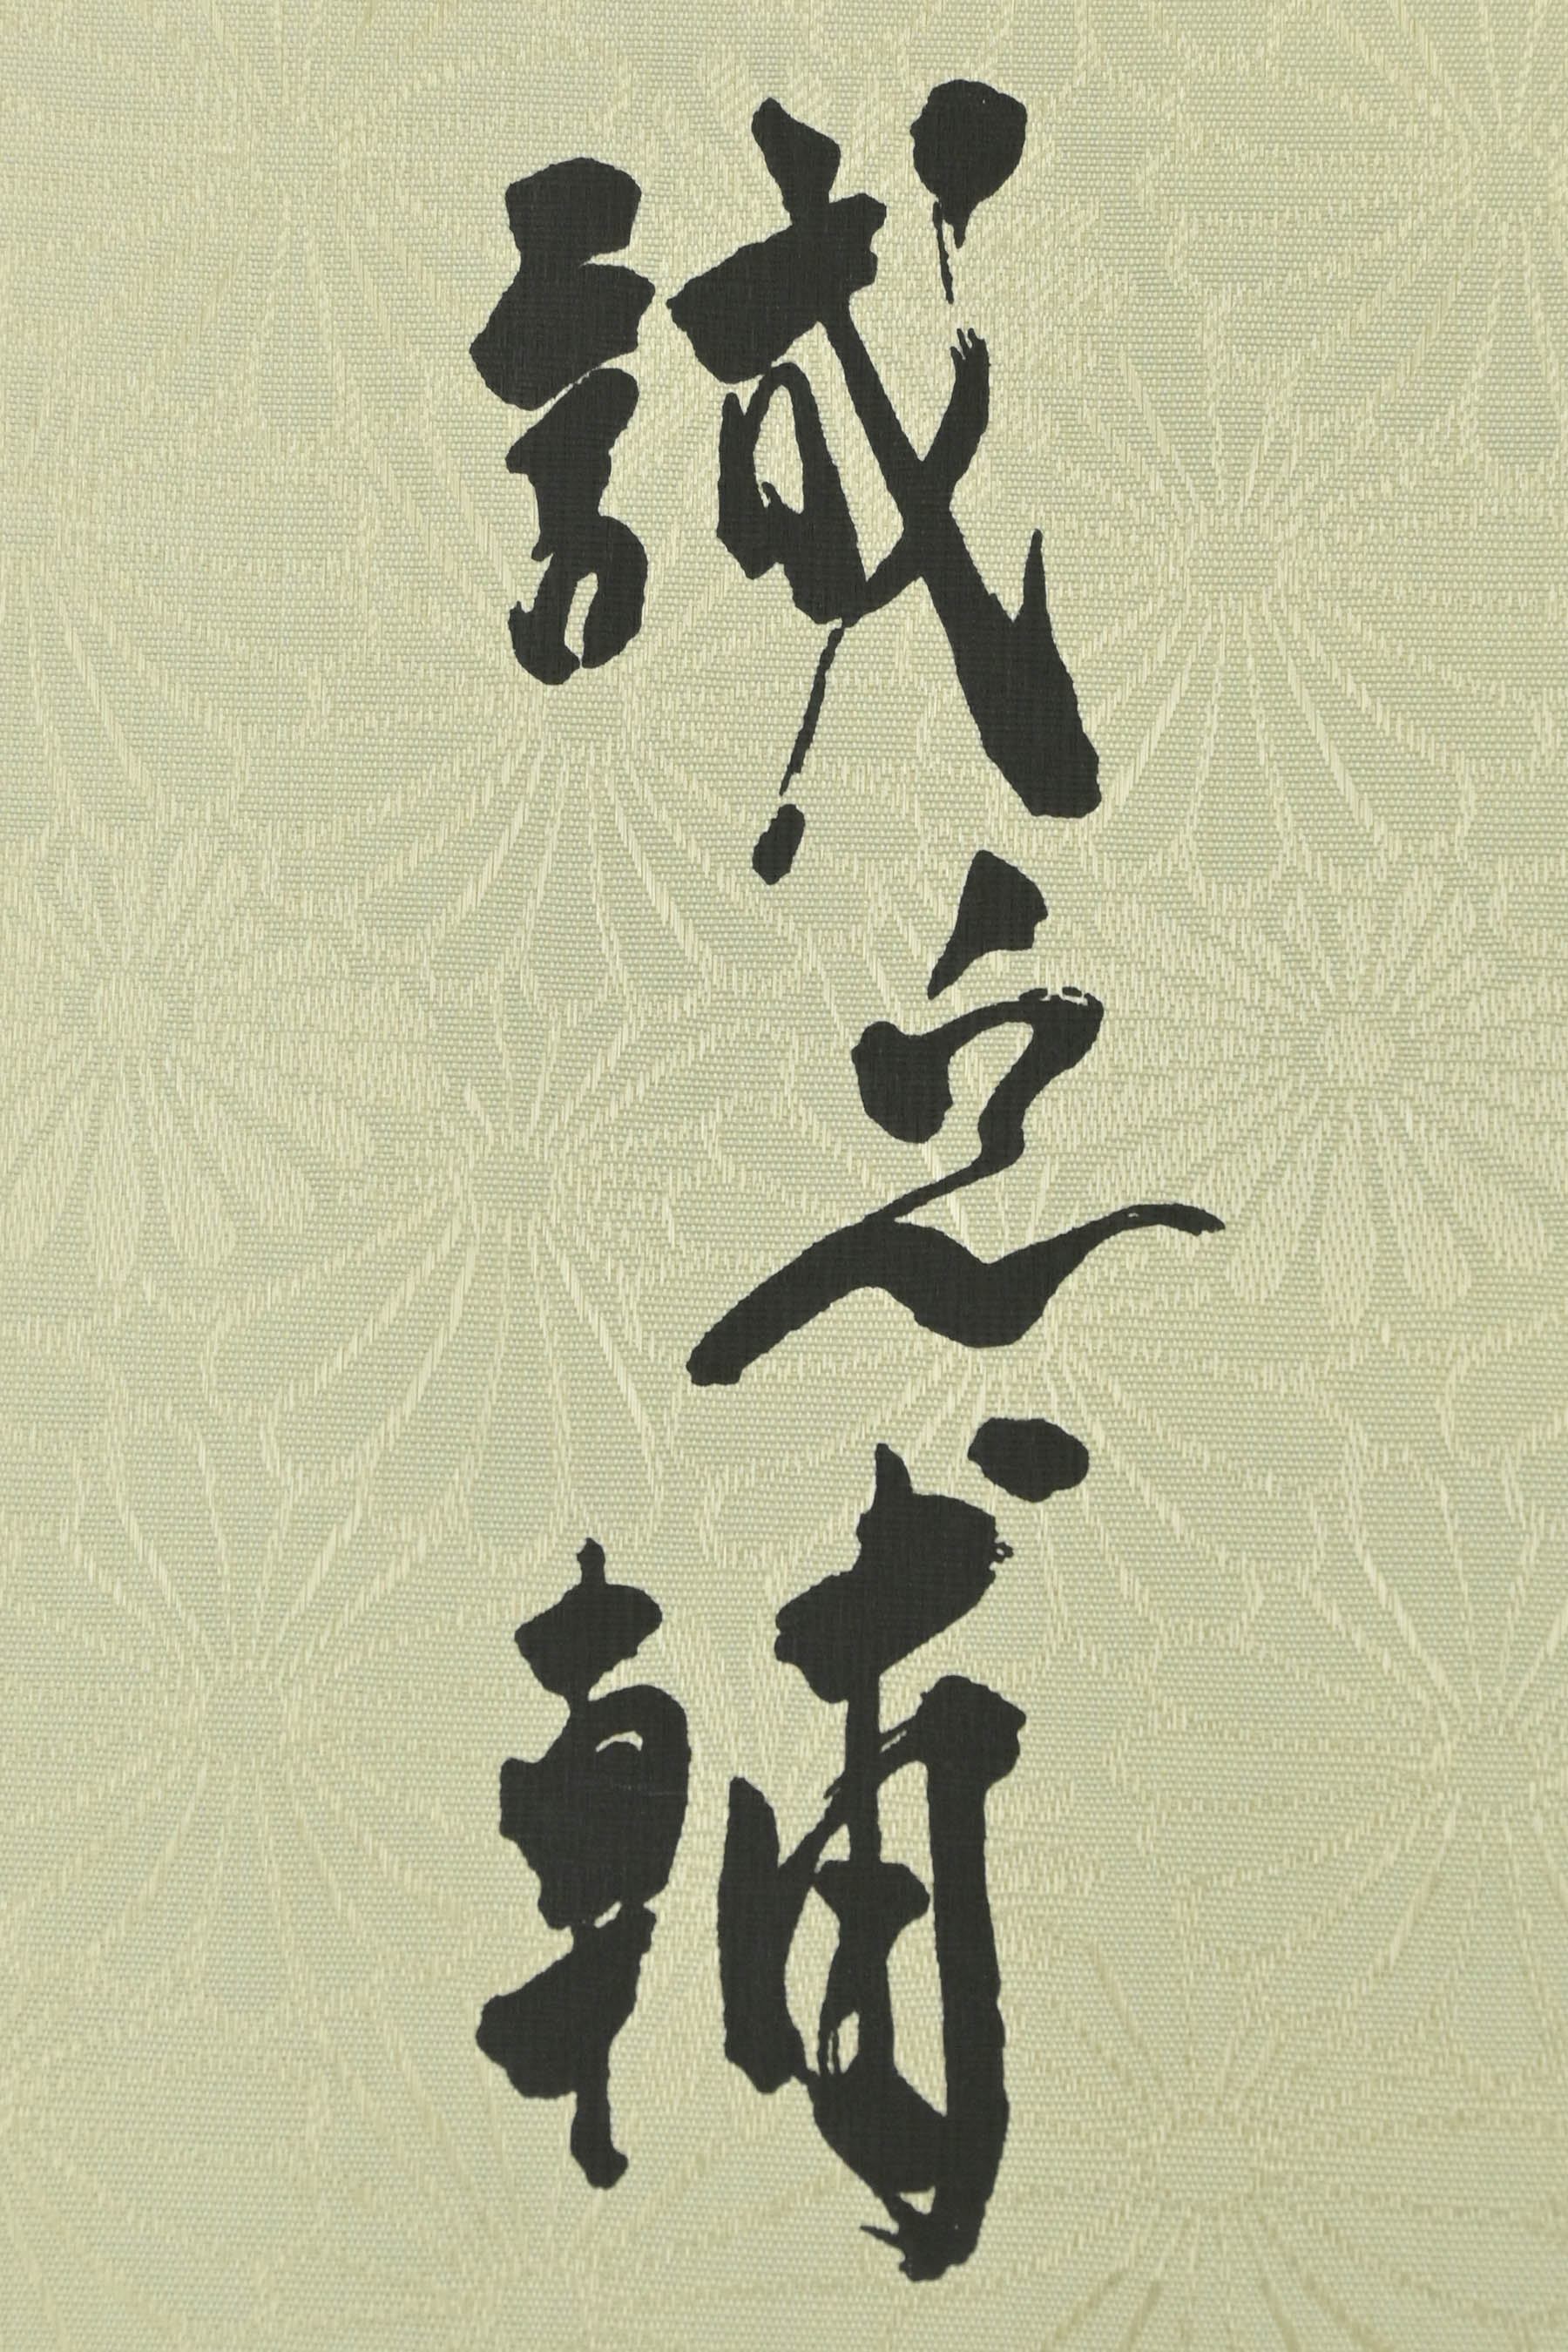 誠之輔